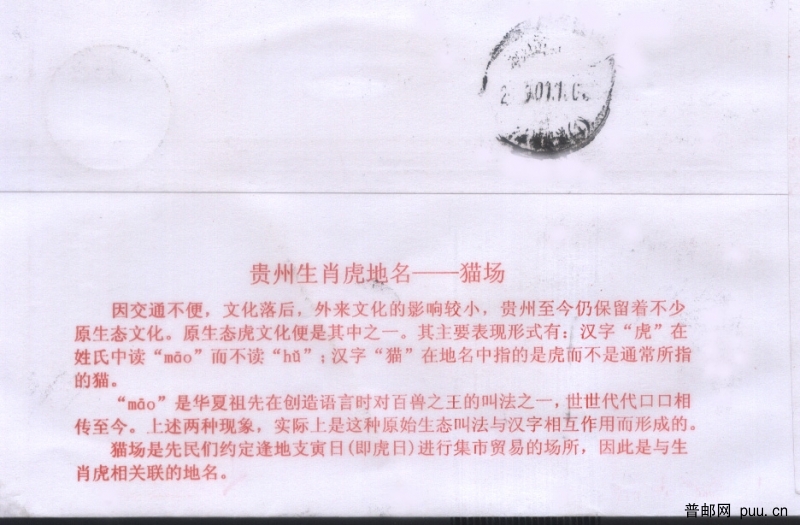 贵州生肖虎地名——猫场
因交通不便，文化落后，外来文化的影响较小，贵州至今仍保留着不少
原生态文化。原生态虎文化便是其中之一。其主要表现形式有：汉字“虎”在
姓氏中读“māo”而不读“hǔ”；汉字“猫”在地名中指的是虎而不是通常所指
的猫。
“māo”是华夏祖先在创造语言时对百兽之王的叫法之一，世世代代口口相
传至今。上述两种现象，实际上是这种原始生态叫法与汉字相互作用而形成的。
猫场是先民们约定逢地支寅日(即虎日)进行集市贸易的场所，因此是与生
肖虎相关联的地名。
普邮网 puu.cn